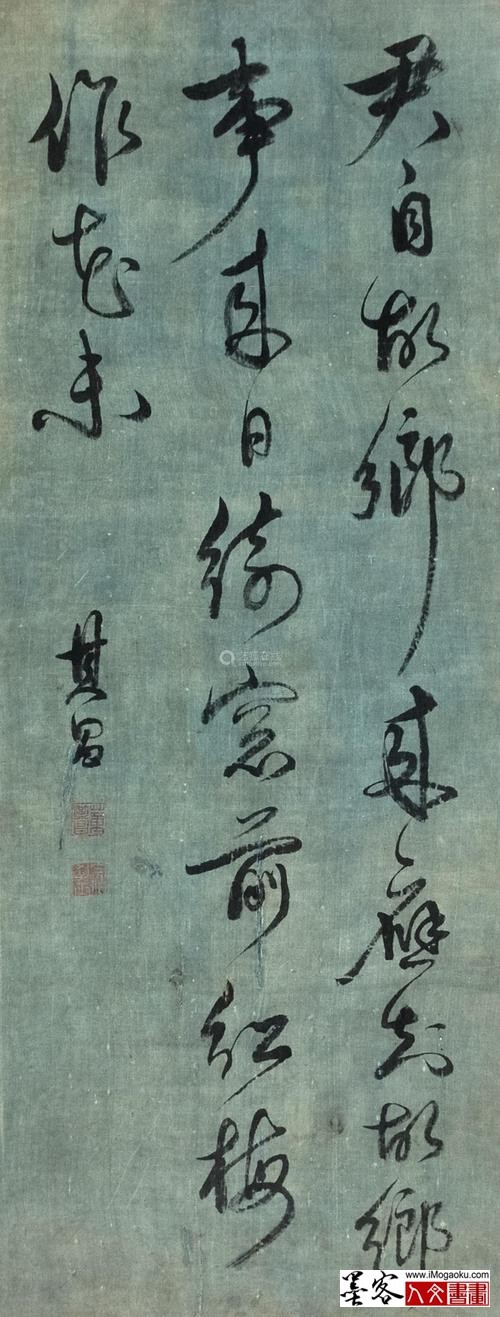 君自故鄉來應知故鄉
事來日綺窓前紅梅
作花未
其昌
墨客
www.iMogaoku.com
人文書畫